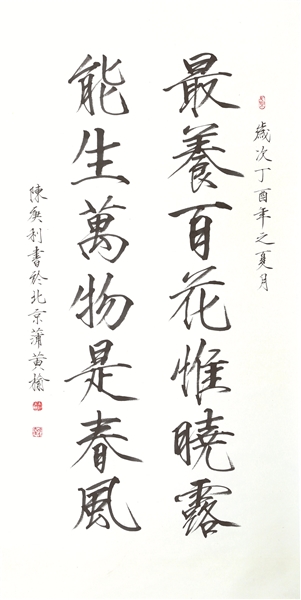 歲次丁酉年之夏月
最養百花惟曉露
能生萬物是春風
陳奕利書於北京蒲黄榆